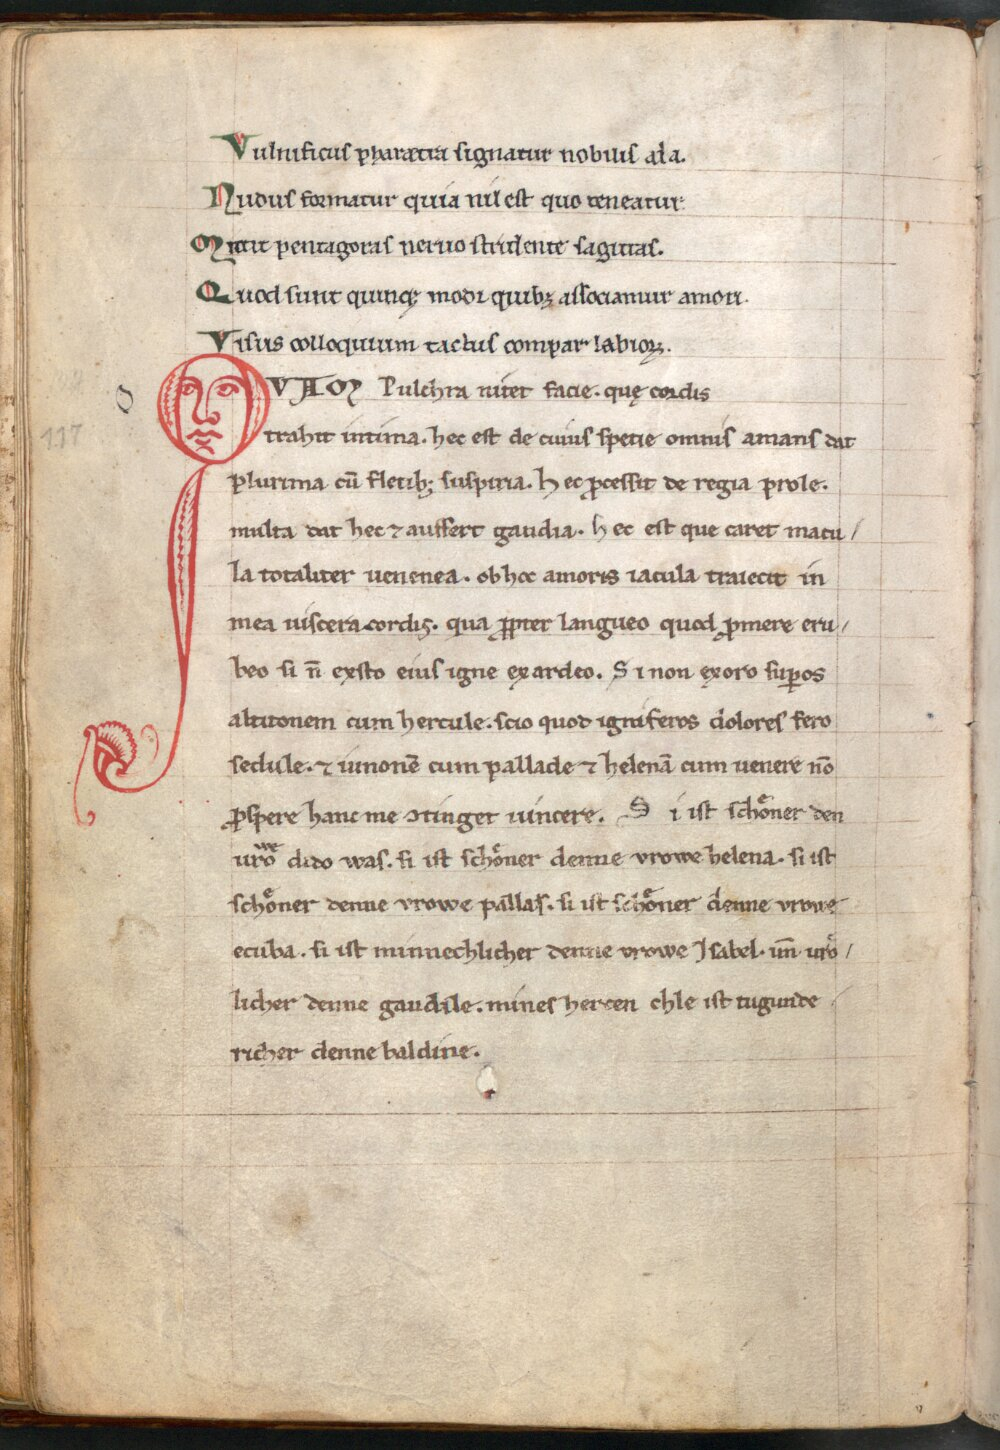 Vulnificus pharatra signatur nobilis ala.
Nudus formatur quia nil est quo teneatur
Mittit pentagoras neruo stridente sagittas.
Quod sunt quinqꝫ modi quibꝫ associamur amori.
Visus colloquium tactus compar labioꝝ.
QVAM Pulchra nitet facie. quę cordis
trahit intima. hec est de cuius specie omnis amans dat
plurima cū fletibꝫ suspiria. Hec ꝓcessit de regia prole.
multa dat hec ⁊ auffert gaudia. hec est que caret macu/
la totaliter uenenea. ob hoc amoris iacula traiecit in
mea uiscera cordis. qua ꝓpter langueo quod ꝓmere eru/
beo si n̄ exsto eius igne exardeo. Si non exoro suꝑos
altitonem cum hercule. scio quod igniferos dolores fero
sedule. ⁊ iunonē cum pallade ⁊ helenā cum uenere nō
ꝓspere hanc me ↄtinget uincere. Si ist schoͤner den
uroͮwe dido was. si ist schoͤner denne vrowe helena. si ist
schoͤner denne vrowe pallas. si ist schoͤner denne vrowe
ecuba. si ist minnechlicher denne vrowe Isabel. un̄ uroͤ/
licher denne gaudile. mines hercen chle ist tugunde
richer denne baldine.
117